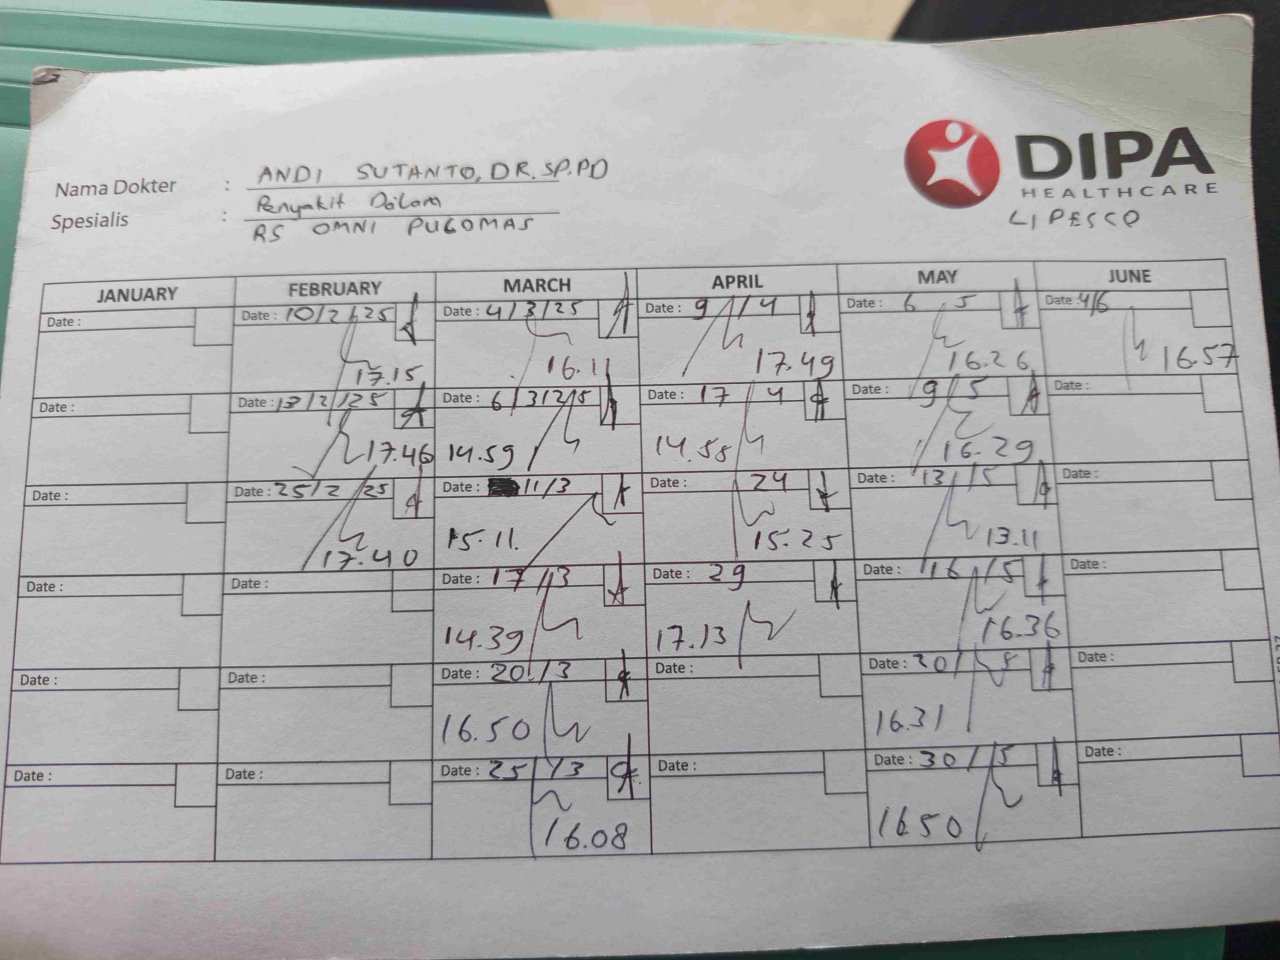 DIPA
HEALTHCARE
LIPESCO
Nama Dokter : ANDI SUTANTO, DR. SP.PD
Spesialis : Penyakit Dalam
RS OMNI PULOMAS
JANUARY FEBRUARY MARCH APRIL MAY JUNE
Date : Date : 10/2/25 Date : 4/3/25 Date : 9/4 Date : 6 5 Date : 4/6
17.15 16.11 17.49 16.26 16.57
Date : Date : 13/2/25 Date : 6/3/25 Date : 17 4 Date : 9/5 Date :
17.46 14.59 14.58 16.29
Date : Date : 25/2/25 Date : 11/3 Date : 24 Date : 13/5 Date :
17.40 15.11. 15.25 13.11
Date : Date : Date : 17/3 Date : 29 Date : 16/5 Date :
14.39 17.13 16.36
Date : Date : Date : 20/3 Date : Date : 20/5 Date :
16.50 16.31
Date : Date : Date : 25/3 Date : Date : 30/5 Date :
16.08 16.50